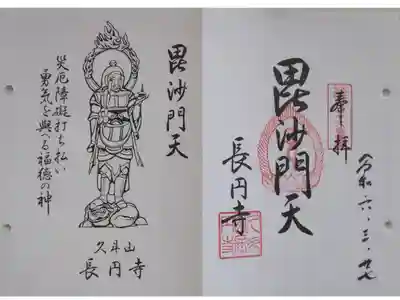 毘沙門天
災厄障礙打ち払い
勇気を与へる福徳の神
久斗山
長円寺
奉拝
令和六、三、
毘沙門天
長円寺